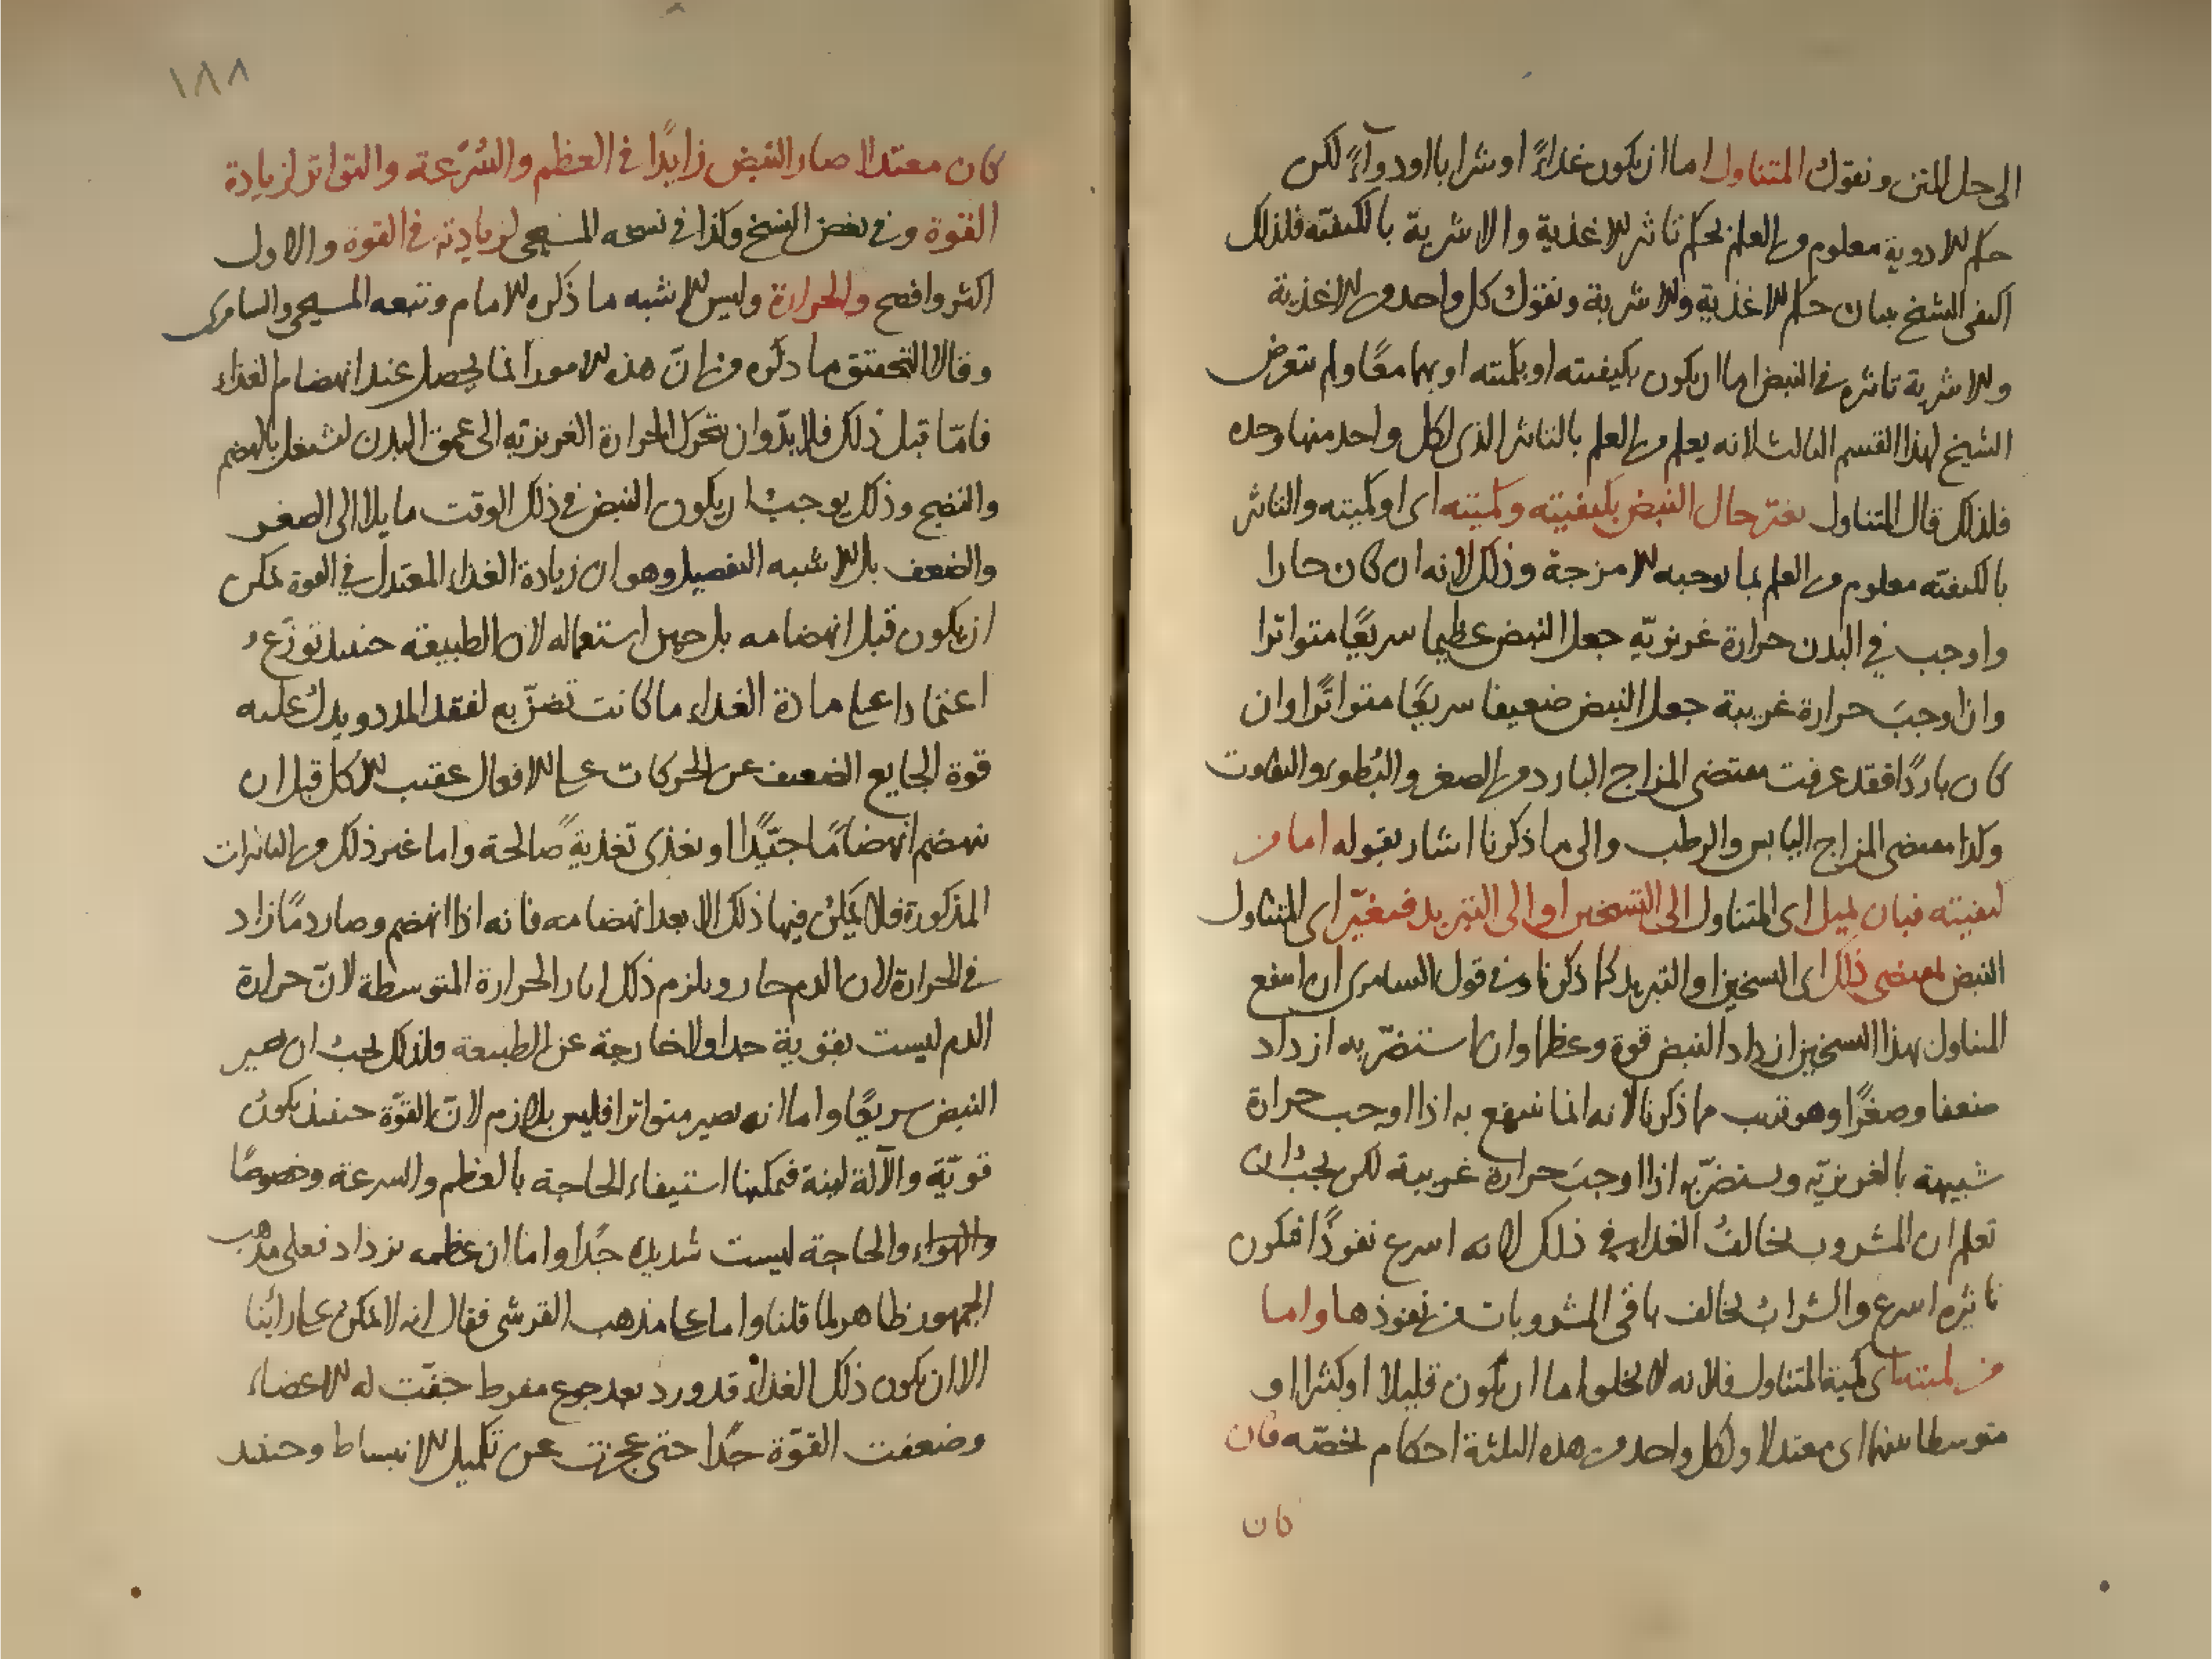 الى حل المتن ونقول المتناول اما ان يكون غذاءً او شرابا او دوآءً لكن
حكم الادوية معلوم من العلم بحكم تاثير الاغذية والاشربة بالكيفية فلذلك
اكتفى الشيخ ببيان حكم الاغذية والاشربة ونقول كل واحد من الاغذية
والاشربة تاثيره في النبض اما ان يكون بكيفيته او بكميته او بهما معًا ولم يتعرض
الشيخ لهذا القسم الثالث لانه يعلم من العلم بالتاثير الذى لكل واحد منها وحده
فلذلك قال المتناول يغيّر حال النبض بكيفيته وكميته اى او كميته والتاثير
بالكيفية معلوم من العلم بما توجبه الامزجة وذلك لانه ان كان حارا
واوجب في البدن حرارة غريزيّه جعل النبض عظيما سريعًا متواترا
وان اوجبَ حرارة غريبة جعل النبض ضعيفا سريعًا متواترًا وان
كان باردًا فقد عرفت مقتضى المزاج البارد من الصغر والبُطوء والتفاوت
وكذا مقتضى المزاج اليابس والرطب والى ما ذكرنا اشار بقوله اما من
كيفيته فبان يميل اى المتناول الى التسخين او الى التبريد فيغيّر اى المتناول
النبض بمقتضى ذلك اى التسخين او التبريد كما ذكرنا وفي قول السامرى ان انتفع
المتناول بهذا التسخين ازداد النبض قوة وعظما وان استضرّ به ازداد
ضعفا وصغرًا وهو قريب مما ذكرنا لانه انما ينتفع به اذا اوجب حرارة
شبيهة بالغريزيّه ويستضرّ به اذا اوجبَ حرارة غريبة لكن يجبُ ان
تعلم ان المشروب يخالفُ الغذاء في ذلك لانه اسرع نفوذًا فيكون
تاثيره اسرع والشرابُ يخالف باقى المشروبات في نفوذها واما
من كميته اى كمية المتناول فلانه لا يخلو اما ان يكون قليلا او كثيرا او
متوسطا بينهما اى معتدلا ولكل واحد من هذه الثلثة احكام تخصّه فان
كان
١٨٨
كان معتدلا صار النبض زايدًا في العظم والسُّرعة والتواتر لزيادة
القوة وفي بعض النسخ وكذا في نسخة المسيحي لزيادته في القوة والاول
اكثر وافصح والحرارة وليس الاشبه ما ذكره الامام وتبعه المسيحي والسامرى
وقالا التحقيق ما ذكره من انّ هذه الامور انما يحصل عند انهضام الغذاء
فامّا قبل ذلك فلا بدّ وان تتحرك الحرارة الغريزيّه الى عمق البدن لتشتغل بالهضم
والنضج وذلك يوجبُ ان يكون النبض في ذلك الوقت مايلا الى الصغر
والضعف بل الاشبه التفصيل وهو ان زيادة الغذاء المعتدل في القوة يمكن
ان يكون قبل انهضامه بل حين استعماله لان الطبيعة حينئذ توزّع
اعتمادا على مادة الغذاء ما كانت تضنّ به لفقد المدد ويدلُ عليه
قوة الجايع الضعيف عن الحركات على الافعال عقيب الاكل قبل ان
ينهضم انهضامًا جيّدًا او يغذى تغذيةً صالحة واما غير ذلك من التاثيرات
المذكورة فلا يمكنُ فيها ذلك الا بعد انهضامه فانه اذا انهضم وصار دمًا زاد
في الحرارة لان الدم حار ويلزم ذلك الحرارة المتوسطة لانّ حرارة
الدم ليست بقوية جدا ولا خارجة عن الطبيعة فلذلك يجبُ ان يصير
النبض سريعًا واما انه يصير متواترا فليس بلازم لانّ القوّة حينئذ يكونُ
قويّة والآلة لينة فيمكنها استيفاء الحاجة بالعظم والسرعة وخصوصًا
والهواء والحاجة ليست شديدة جًدا واما ان عظمه يزداد فعلى مذهب
الجمهور ظاهر لما قلنا واما على مذهب القرشى فقال انه لا يمكن على راينا
الا ان يكون ذلك الغذاء قد ورد بعد جوع مفرط جفّت له الاعضاء
وضعفت القوّة جًدا حتى عجزت عن تكميل الانبساط وحينئذ